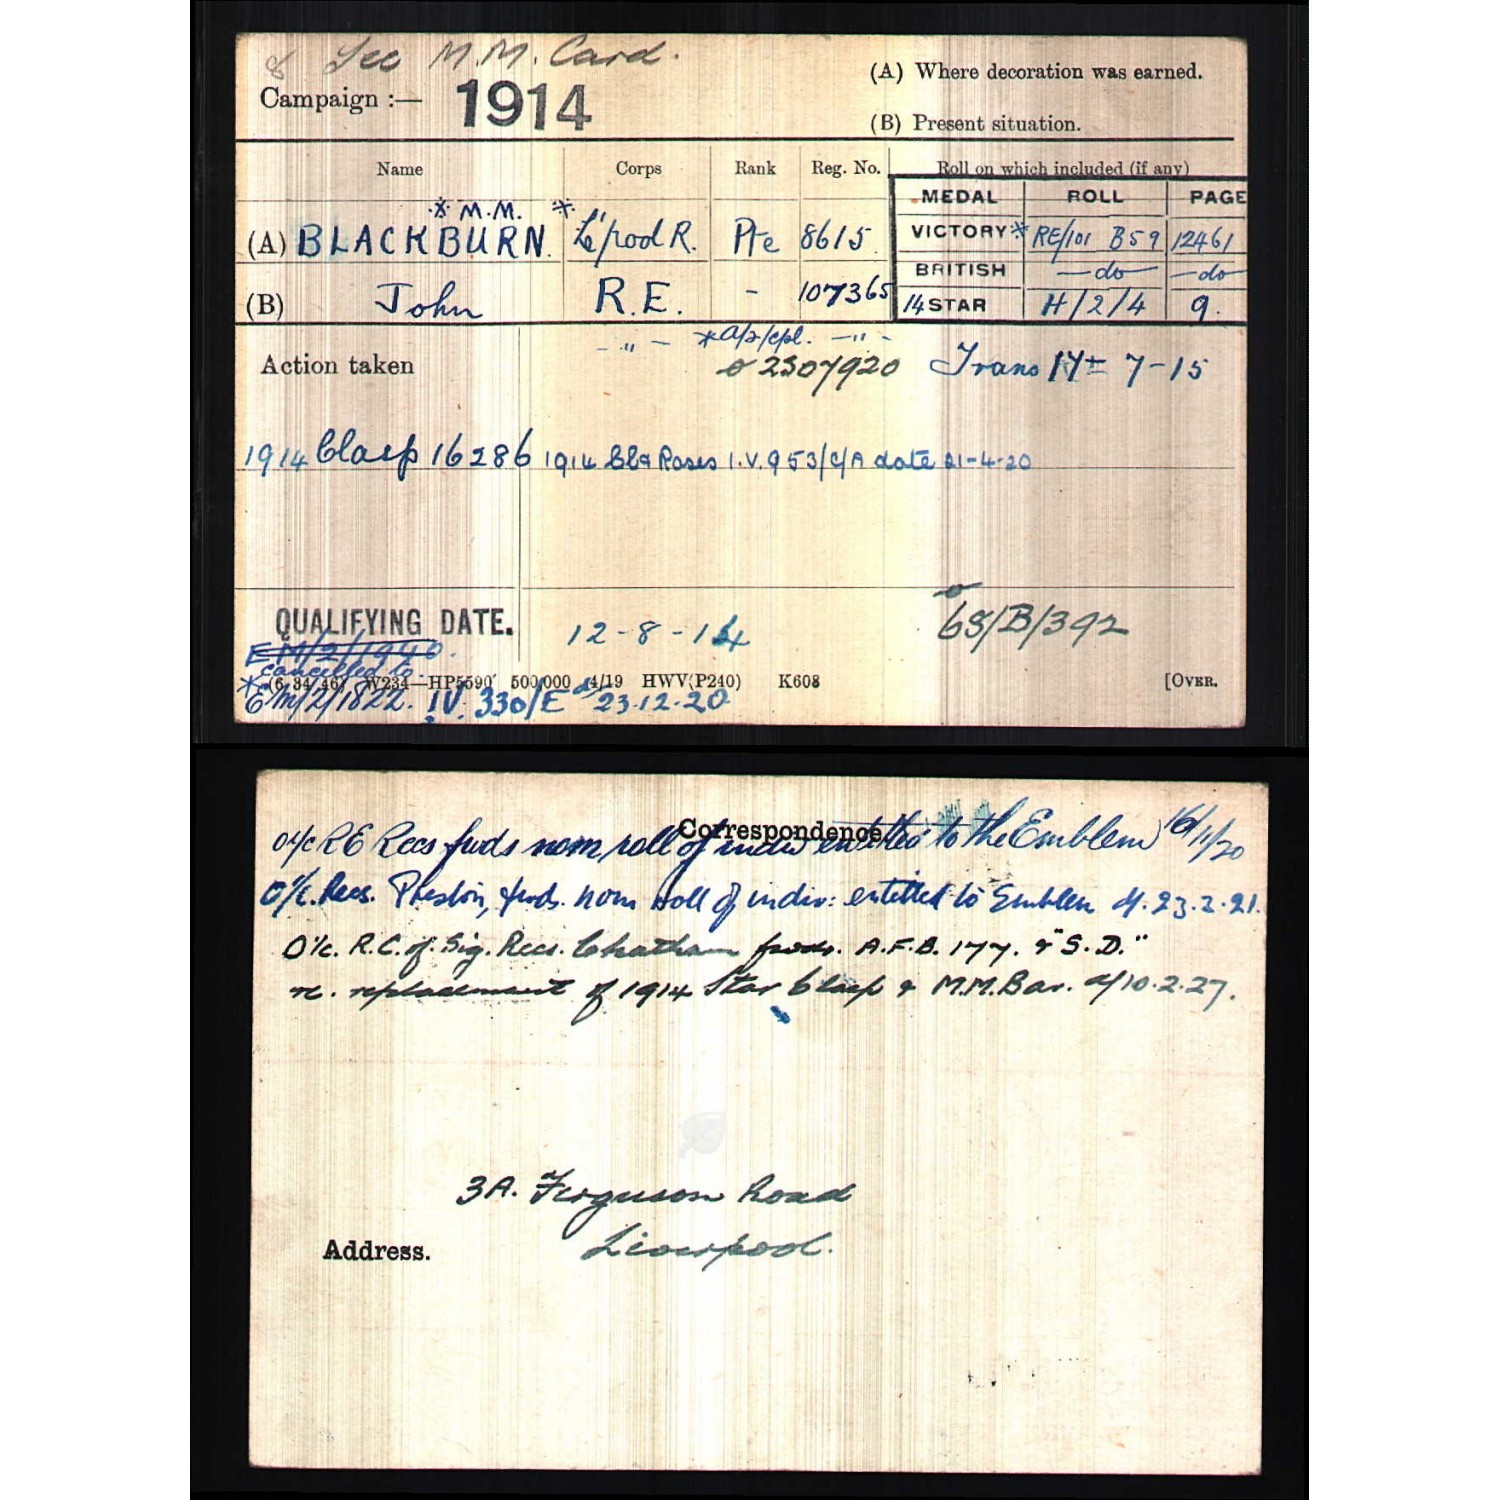 & See M.M. Card.
Campaign :— 1914
(A) Where decoration was earned.
(B) Present situation.
Name Corps Rank Reg. No. Roll on which included (if any)
MEDAL ROLL PAGE
* M.M. *
(A) BLACKBURN. L'pool R. Pte 8615. VICTORY* RE/101 B59 12461
BRITISH —do— —do—
(B) John R.E. - 107365 14 STAR H/2/4 9.
- " - *A/2/Cpl. - " -
Action taken 2307920 Trans 17± 7-15
1914 Clasp 16286 1914 Cl& Roses I.V.953/C/A date 21-4-20
QUALIFYING DATE. 12-8-14 68/B/392
EM/2/1940.
cancelled to
(6 34 46) W234—HP5590 500,000 4/19 HWV(P240) K608 [OVER.
* EM/2/1822. IV. 330/E d/ 23.12.20
Correspondence
O i/c RE Recs fwds nom roll of indiv entitled to the Emblem 16/11/20
O i/c. Recs. Preston, fwds. nom roll of indiv: entitled to Emblem d/. 23.2.21.
O i/c. R.C. of Sig. Recs. Chatham fwds. A.F.B. 177. & "S.D."
re. replacement of 1914 Star Clasp & M.M. Bar. d/10.2.27.
3A. Ferguson Road
Address. Liverpool.